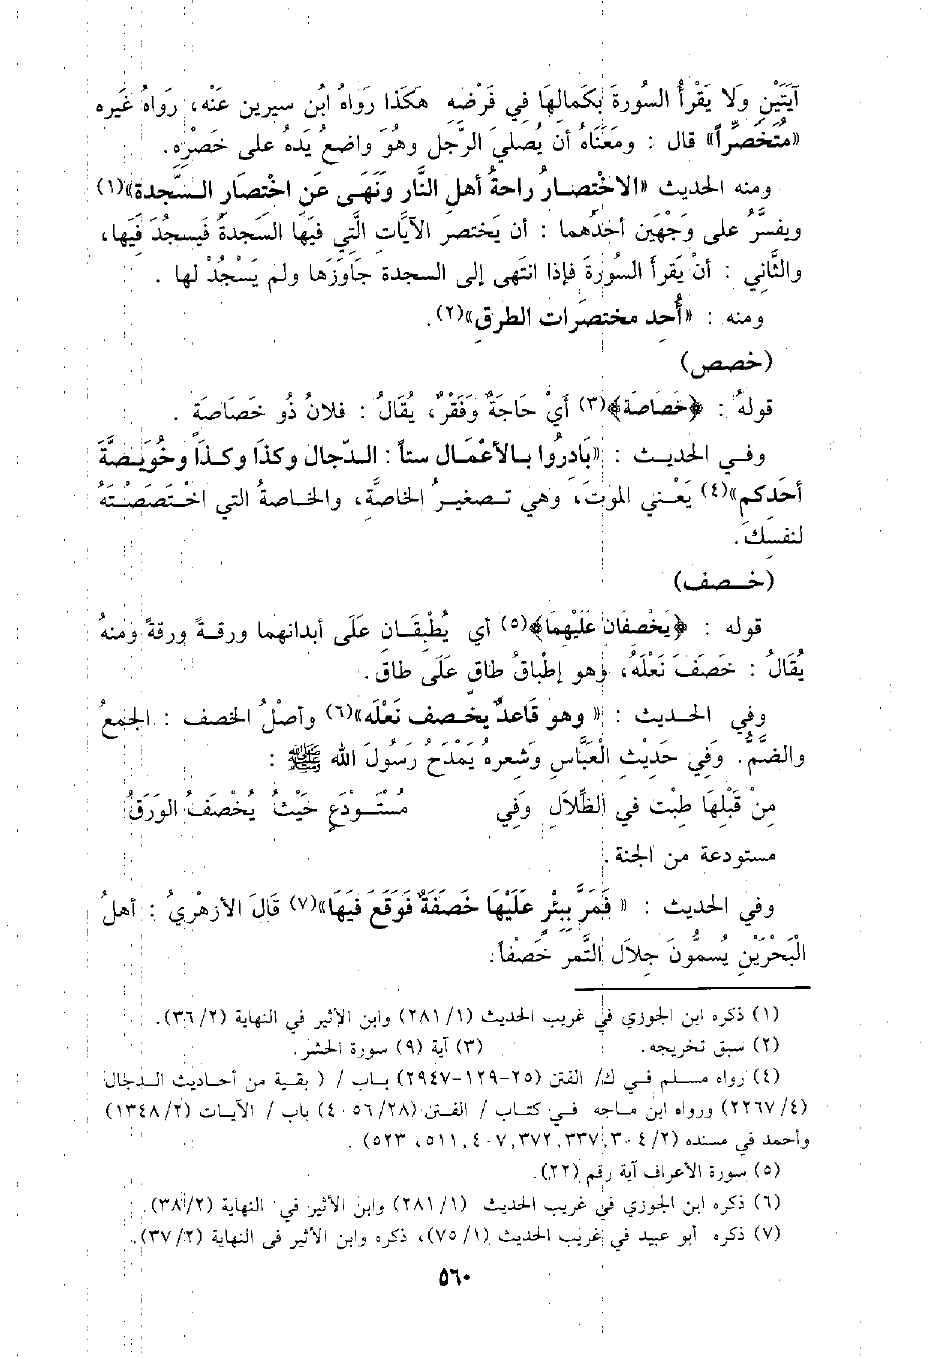 آيَتَيْنِ وَلَا يَقْرَأُ السُورَةَ بِكَمالِهَا فِي فَرْضِهِ هَكَذا رَوَاهُ ابُن سيرين عَنْه، رَواهُ غَيره
«مُتَخَصِّراً» قال : ومَعَنَاهُ أن يُصَليَ الرّجل وهُوَ وَاضعٌ يَدَهُ على خَصْرِهِ.
ومنه الحديث «الاخْتِصَارُ رَاحةُ أهلِ النَّار وَنَهَى عَنِ اخْتصَارِ السَّجدة»(١)
ويفسَّرُ على وَجْهَين أحدُهما : أن يَختصر الآيَاتِ الَّتِي فيَهَا السَجدةُ فَيسجُدَ فَيها،
والثَّاني : أنْ يَقرأَ السُورةَ فإذا انتَهى إلى السجدة جَاوَزَها ولم يَسْجُدْ لها .
ومنه : «أُحد مختصَرات الطرقِ»(٢).
(خصص)
قولهُ : ﴿خَصَاصَة﴾(٣) أَيْ حَاجَةٌ وَفَقْرٌ، يُقَالُ : فلانُ ذُو خَصَاصَةٍ .
وفي الحديث : «بَادِرُوا بالأعْمَال ستاً : الدّجال وكذَا وكذَاً وخُوَيصَّةَ
أحَدكم»(٤) يَعْني الموتَ، وهي تصغيرُ الخاصَّةِ، والخاصةُ التي اخْتَصَصْتَهُ
لنفسَكَ.
(خصف)
قوله : ﴿يَخْصِفَانِ عَلَيْهِمَا﴾(٥) أي يُطْبِقَانِ عَلَى أبدانهما ورقةً ورقةً ومنهُ
يُقَالُ : خَصَفَ نَعْلَهُ، وهو إطْباقُ طاقٍ عَلَى طاقٍ.
وفي الحديث : « وهو قَاعدٌ يخصف نَعْلَه»(٦) وأصْلُ الخصف : الجمعُ
والضمُّ. وَفِي حَدِيْثِ الْعَبَّاسِ وَشِعره يَمْدَحُ رَسُولَ الله ﷺ :
مِنْ قَبْلِهَا طِبْت في الظَّلَالِ وَفِي مُسْتَوْدَعٍ حَيْثُ يُخْصَفُ الوَرَقُ
مستودعة من الجنة .
وفي الحديث : « فَمَرَّ بِبِئْرٍ عَلَيْهَا خَصَفَةٌ فَوَقَعَ فَيَهَا»(٧) قَالَ الأزهْريُ : أهلُ
الْبَحْرَيْنِ يُسمُّونَ جِلاَلَ التَّمر خَصْفاً.
(١) ذكره ابن الجوزي في غريب الحديث (١/ ٢٨١) وابن الأثير في النهاية (٣٦/٢).
(٢) سبق تخريجه. (٣) آية (٩) سورة الحشر.
(٤) رواه مسلم في ك/ الفتن (٢٥-١٢٩-٢٩٤٧) باب / ( بقية من أحاديث الدجال
(٢٢٦٧/٤) ورواه ابن ماجه في كتاب / الفتن (٤٠٥٦/٢٨) باب / الآيات (١٣٤٨/٢)
وأحمد في مسنده (٢/ ٣٠٤, ٣٣٧, ٣٧٢, ٤٠٧, ٥١١، ٥٢٣) .
(٥) سورة الأعراف آية رقم (٢٢).
(٦) ذكره ابن الجوزي في غريب الحديث (١/ ٢٨١) وابن الأثير في النهاية (٣٨/٢).
(٧) ذكره أبو عبيد في غريب الحديث (١/ ٧٥)، ذكره وابن الأثير فى النهاية (٣٧/٢).
٥٦٠